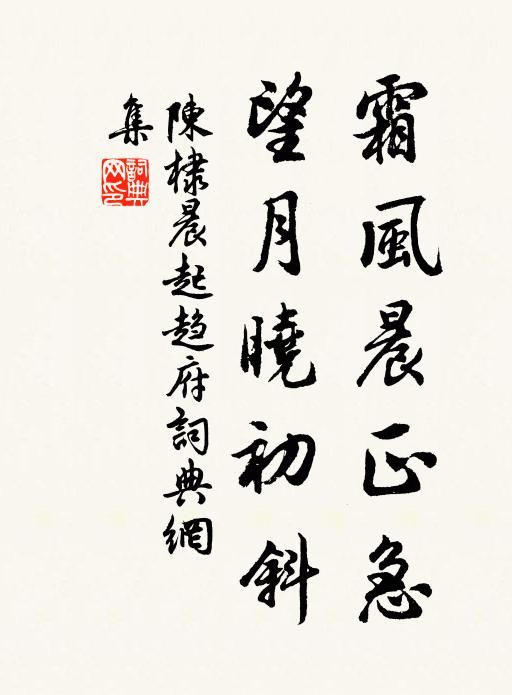 霜風晨正急
望月曉初斜
陳棣晨起趍府詞典網
集
詞典网印